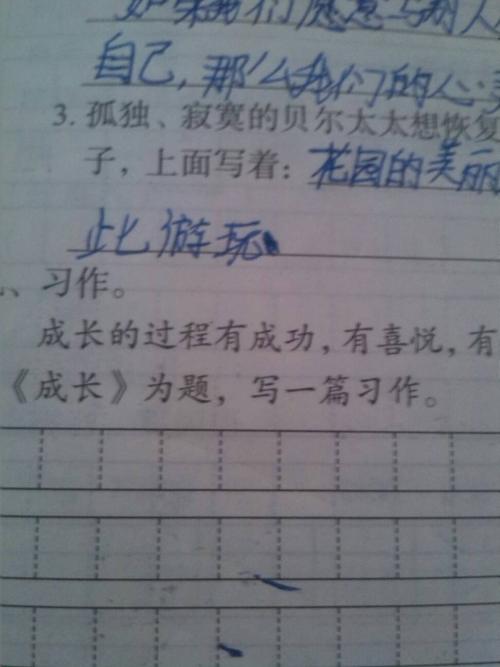 如果我们愿意与别人
自己,那么我们的心
3. 孤独、寂寞的贝尔太太想恢复
子,上面写着:花园的美丽
此游玩
、习作。
成长的过程有成功,有喜悦,有
《成长》为题,写一篇习作。